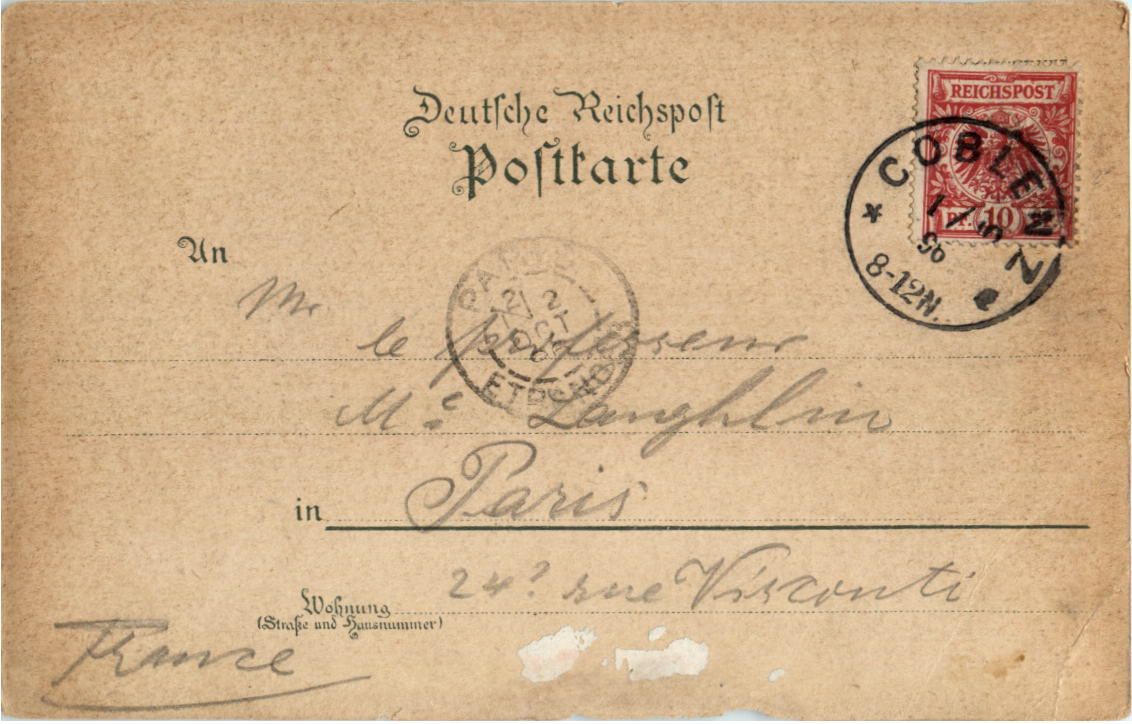 Deutsche Reichspost
Postkarte
REICHSPOST
PF. 10
COBLENZ
1/
96
8-12N.
An
Mr
PARIS
2
OCT
ETRANGER
le professeur
Mc Laughlin
in Paris
24? rue Visconti
Wohnung
(Straße und Hausnummer)
France